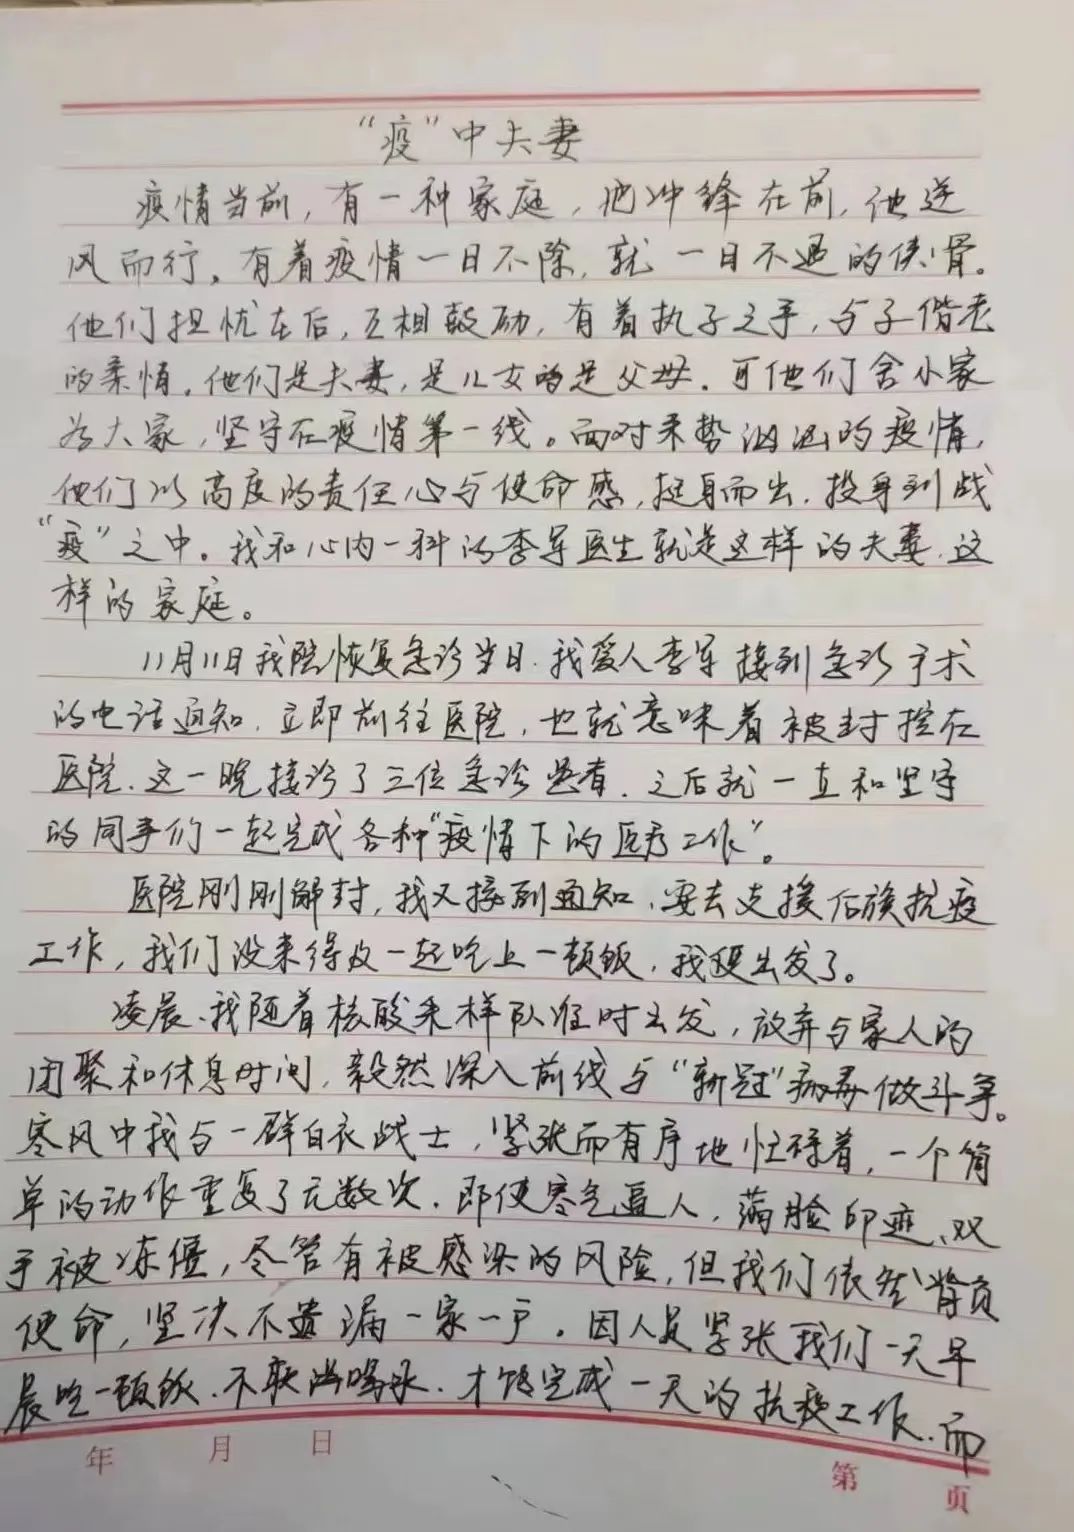 “疫”中夫妻
疫情当前，有一种家庭，他冲锋在前，他逆
风而行。有着疫情一日不除，就一日不退的侠骨。
他们担忧在后，互相鼓励，有着执子之手，与子偕老
的柔情。他们是夫妻，是儿女的是父母。可他们舍小家
为大家，坚守在疫情第一线。面对来势汹汹的疫情，
他们以高度的责任心与使命感，挺身而出，投身到战
“疫”之中。我和心内一科的李军医生就是这样的夫妻，这
样的家庭。
11月11日我院恢复急诊当日，我爱人李军接到急诊手术
的电话通知，立即前往医院，也就意味着被封控在
医院，这一晚接诊了三位急诊患者，之后就一直和坚守
的同事们一起完成各种“疫情下的医疗工作”。
医院刚刚解封，我又接到通知，要去支援后旗抗疫
工作，我们没来得及一起吃上一顿饭，我便出发了。
凌晨、我随着核酸采样队准时出发，放弃与家人的
团聚和休息时间，毅然深入前线与“新冠”病毒做斗争。
寒风中我与一群白衣战士，紧张而有序地忙碌着，一个简
单的动作重复了无数次，即使寒气逼人，满脸印迹、双
手被冻僵，尽管有被感染的风险，但我们依然背负
使命，坚决不遗漏一家一户。因人员紧张我们一天早
晨吃一顿饭、不敢喝水，才能完成一天的抗疫工作，而
年 月 日
第 页